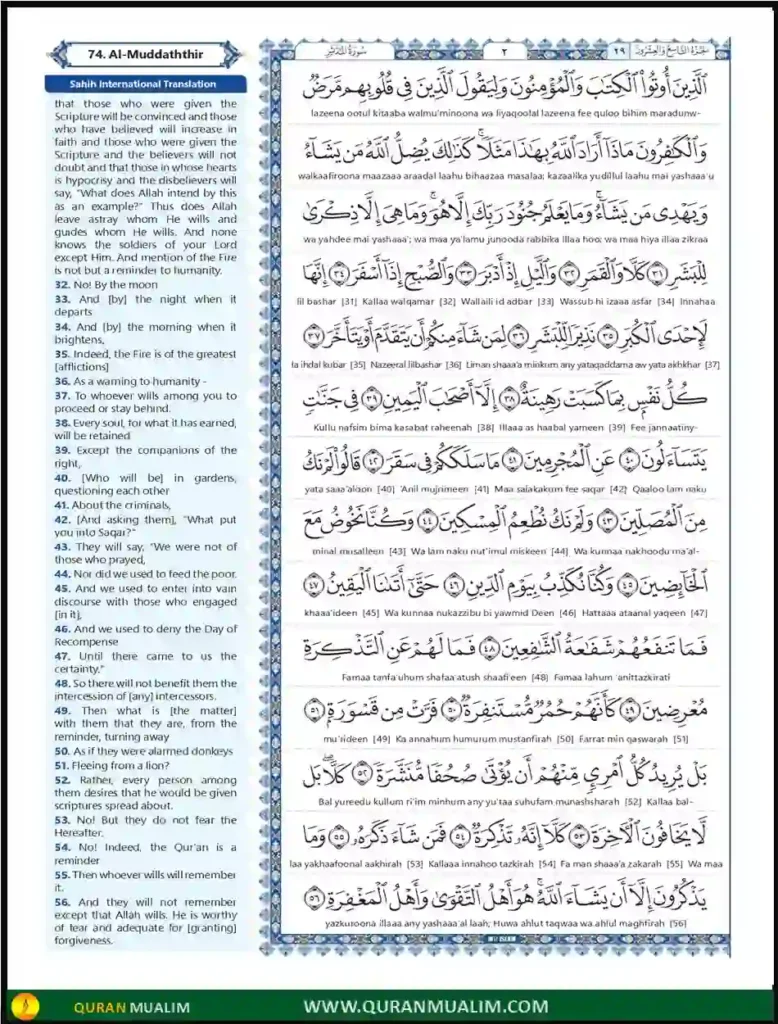 74. Al-Muddaththir
Sahih International Translation
that those who were given the
Scripture will be convinced and those
who have believed will increase in
faith and those who were given the
Scripture and the believers will not
doubt and that those in whose hearts
is hypocrisy and the disbelievers will
say, "What does Allah intend by this
as an example?" Thus does Allah
leave astray whom He wills and
guides whom He wills. And none
knows the soldiers of your Lord
except Him. And mention of the Fire
is not but a reminder to humanity.
32. No! By the moon
33. And [by] the night when it
departs
34. And [by] the morning when it
brightens,
35. Indeed, the Fire is of the greatest
[afflictions]
36. As a warning to humanity -
37. To whoever wills among you to
proceed or stay behind.
38. Every soul, for what it has earned,
will be retained
39. Except the companions of the
right,
40. [Who will be] in gardens,
questioning each other
41. About the criminals,
42. [And asking them], "What put
you into Saqar?"
43. They will say, "We were not of
those who prayed,
44. Nor did we used to feed the poor.
45. And we used to enter into vain
discourse with those who engaged
[in it],
46. And we used to deny the Day of
Recompense
47. Until there came to us the
certainty."
48. So there will not benefit them the
intercession of [any] intercessors.
49. Then what is [the matter]
with them that they are, from the
reminder, turning away
50. As if they were alarmed donkeys
51. Fleeing from a lion?
52. Rather, every person among
them desires that he would be given
scriptures spread about.
53. No! But they do not fear the
Hereafter.
54. No! Indeed, the Qur'an is a
reminder
55. Then whoever wills will remember
it.
56. And they will not remember
except that Allah wills. He is worthy
of fear and adequate for [granting]
forgiveness.
سُورَةُ المُدَّثِّر
٢
الجُزءُ التَّاسِعُ وَالعِشرُون ٢٩
الَّذِينَ أُوتُوا۟ الْكِتَٰبَ وَالْمُؤْمِنُونَ وَلِيَقُولَ الَّذِينَ فِي قُلُوبِهِم مَّرَضٌ
lazeena ootul kitaaba walmu'minoona wa liyaqoolal lazeena fee quloo bihim maradunw-
وَالْكَٰفِرُونَ مَاذَا أَرَادَ اللَّهُ بِهَٰذَا مَثَلًا ۚ كَذَٰلِكَ يُضِلُّ اللَّهُ مَن يَشَآءُ
walkaafiroona maazaaa araadal laahu bihaazaa masalaa; kazaalika yudillul laahu mai yashaaa'u
وَيَهْدِى مَن يَشَآءُ ۚ وَمَا يَعْلَمُ جُنُودَ رَبِّكَ إِلَّا هُوَ ۚ وَمَا هِىَ إِلَّا ذِكْرَىٰ
wa yahdee mai yashaaa'; wa maa ya'lamu junooda rabbika illaa hoo; wa maa hiya illaa zikraa
لِلْبَشَرِ ٣١ كَلَّا وَالْقَمَرِ ٣٢ وَالَّيْلِ إِذْ أَدْبَرَ ٣٣ وَالصُّبْحِ إِذَآ أَسْفَرَ ٣٤ إِنَّهَا
lil bashar [31] Kallaa walqamar [32] Wallaili id adbar [33] Wassub hi izaaa asfar [34] Innahaa
لَإِحْدَى الْكُبَرِ ٣٥ نَذِيرًا لِّلْبَشَرِ ٣٦ لِمَن شَآءَ مِنكُمْ أَن يَتَقَدَّمَ أَوْ يَتَأَخَّرَ ٣٧
la ihdal kubar [35] Nazeeral lilbashar [36] Liman shaaa'a minkum any yataqaddama aw yata akhkhar [37]
كُلُّ نَفْسٍۭ بِمَا كَسَبَتْ رَهِينَةٌ ٣٨ إِلَّآ أَصْحَٰبَ الْيَمِينِ ٣٩ فِى جَنَّٰتٍ
Kullu nafsim bima kasabat raheenah [38] Illaaa as haabal yameen [39] Fee jannaatiny-
يَتَسَآءَلُونَ ٤٠ عَنِ الْمُجْرِمِينَ ٤١ مَا سَلَكَكُمْ فِى سَقَرَ ٤٢ قَالُوا۟ لَمْ نَكُ
yata saaa'aloon [40] 'Anil mujrimeen [41] Maa salakakum fee saqar [42] Qaaloo lam naku
مِنَ الْمُصَلِّينَ ٤٣ وَلَمْ نَكُ نُطْعِمُ الْمِسْكِينَ ٤٤ وَكُنَّا نَخُوضُ مَعَ
minal musalleen [43] Wa lam naku nut'imul miskeen [44] Wa kunnaa nakhoodu ma'al-
الْخَآئِضِينَ ٤٥ وَكُنَّا نُكَذِّبُ بِيَوْمِ الدِّينِ ٤٦ حَتَّىٰٓ أَتَىٰنَا الْيَقِينُ ٤٧
khaaa'ideen [45] Wa kunnaa nukazzibu bi yawmid Deen [46] Hattaaa ataanal yaqeen [47]
فَمَا تَنفَعُهُمْ شَفَٰعَةُ الشَّٰفِعِينَ ٤٨ فَمَا لَهُمْ عَنِ التَّذْكِرَةِ
Famaa tanfa'uhum shafaa'atush shaafi'een [48] Famaa lahum 'anittazkirati
مُعْرِضِينَ ٤٩ كَأَنَّهُمْ حُمُرٌ مُّسْتَنفِرَةٌ ٥٠ فَرَّتْ مِن قَسْوَرَةٍۭ ٥١
mu'rideen [49] Ka annahum humurum mustanfirah [50] Farrat min qaswarah [51]
بَلْ يُرِيدُ كُلُّ امْرِئٍ مِّنْهُمْ أَن يُؤْتَىٰ صُحُفًا مُّنَشَّرَةً ٥٢ كَلَّا ۖ بَل
Bal yureedu kullum ri'im minhum any yu'taa suhufam munashsharah [52] Kallaa bal-
لَّا يَخَافُونَ الْآخِرَةَ ٥٣ كَلَّآ إِنَّهُۥ تَذْكِرَةٌ ٥٤ فَمَن شَآءَ ذَكَرَهُۥ ٥٥ وَمَا
laa yakhaafoonal aakhirah [53] Kallaaa innahoo tazkirah [54] Fa man shaaa'a zakarah [55] Wa maa
يَذْكُرُونَ إِلَّآ أَن يَشَآءَ اللَّهُ ۚ هُوَ أَهْلُ التَّقْوَىٰ وَأَهْلُ الْمَغْفِرَةِ ٥٦
yazkuroona illaaa any yashaaa'al laah; Huwa ahlut taqwaa wa ahlul maghfirah [56]
QURAN MUALIM
WWW.QURANMUALIM.COM